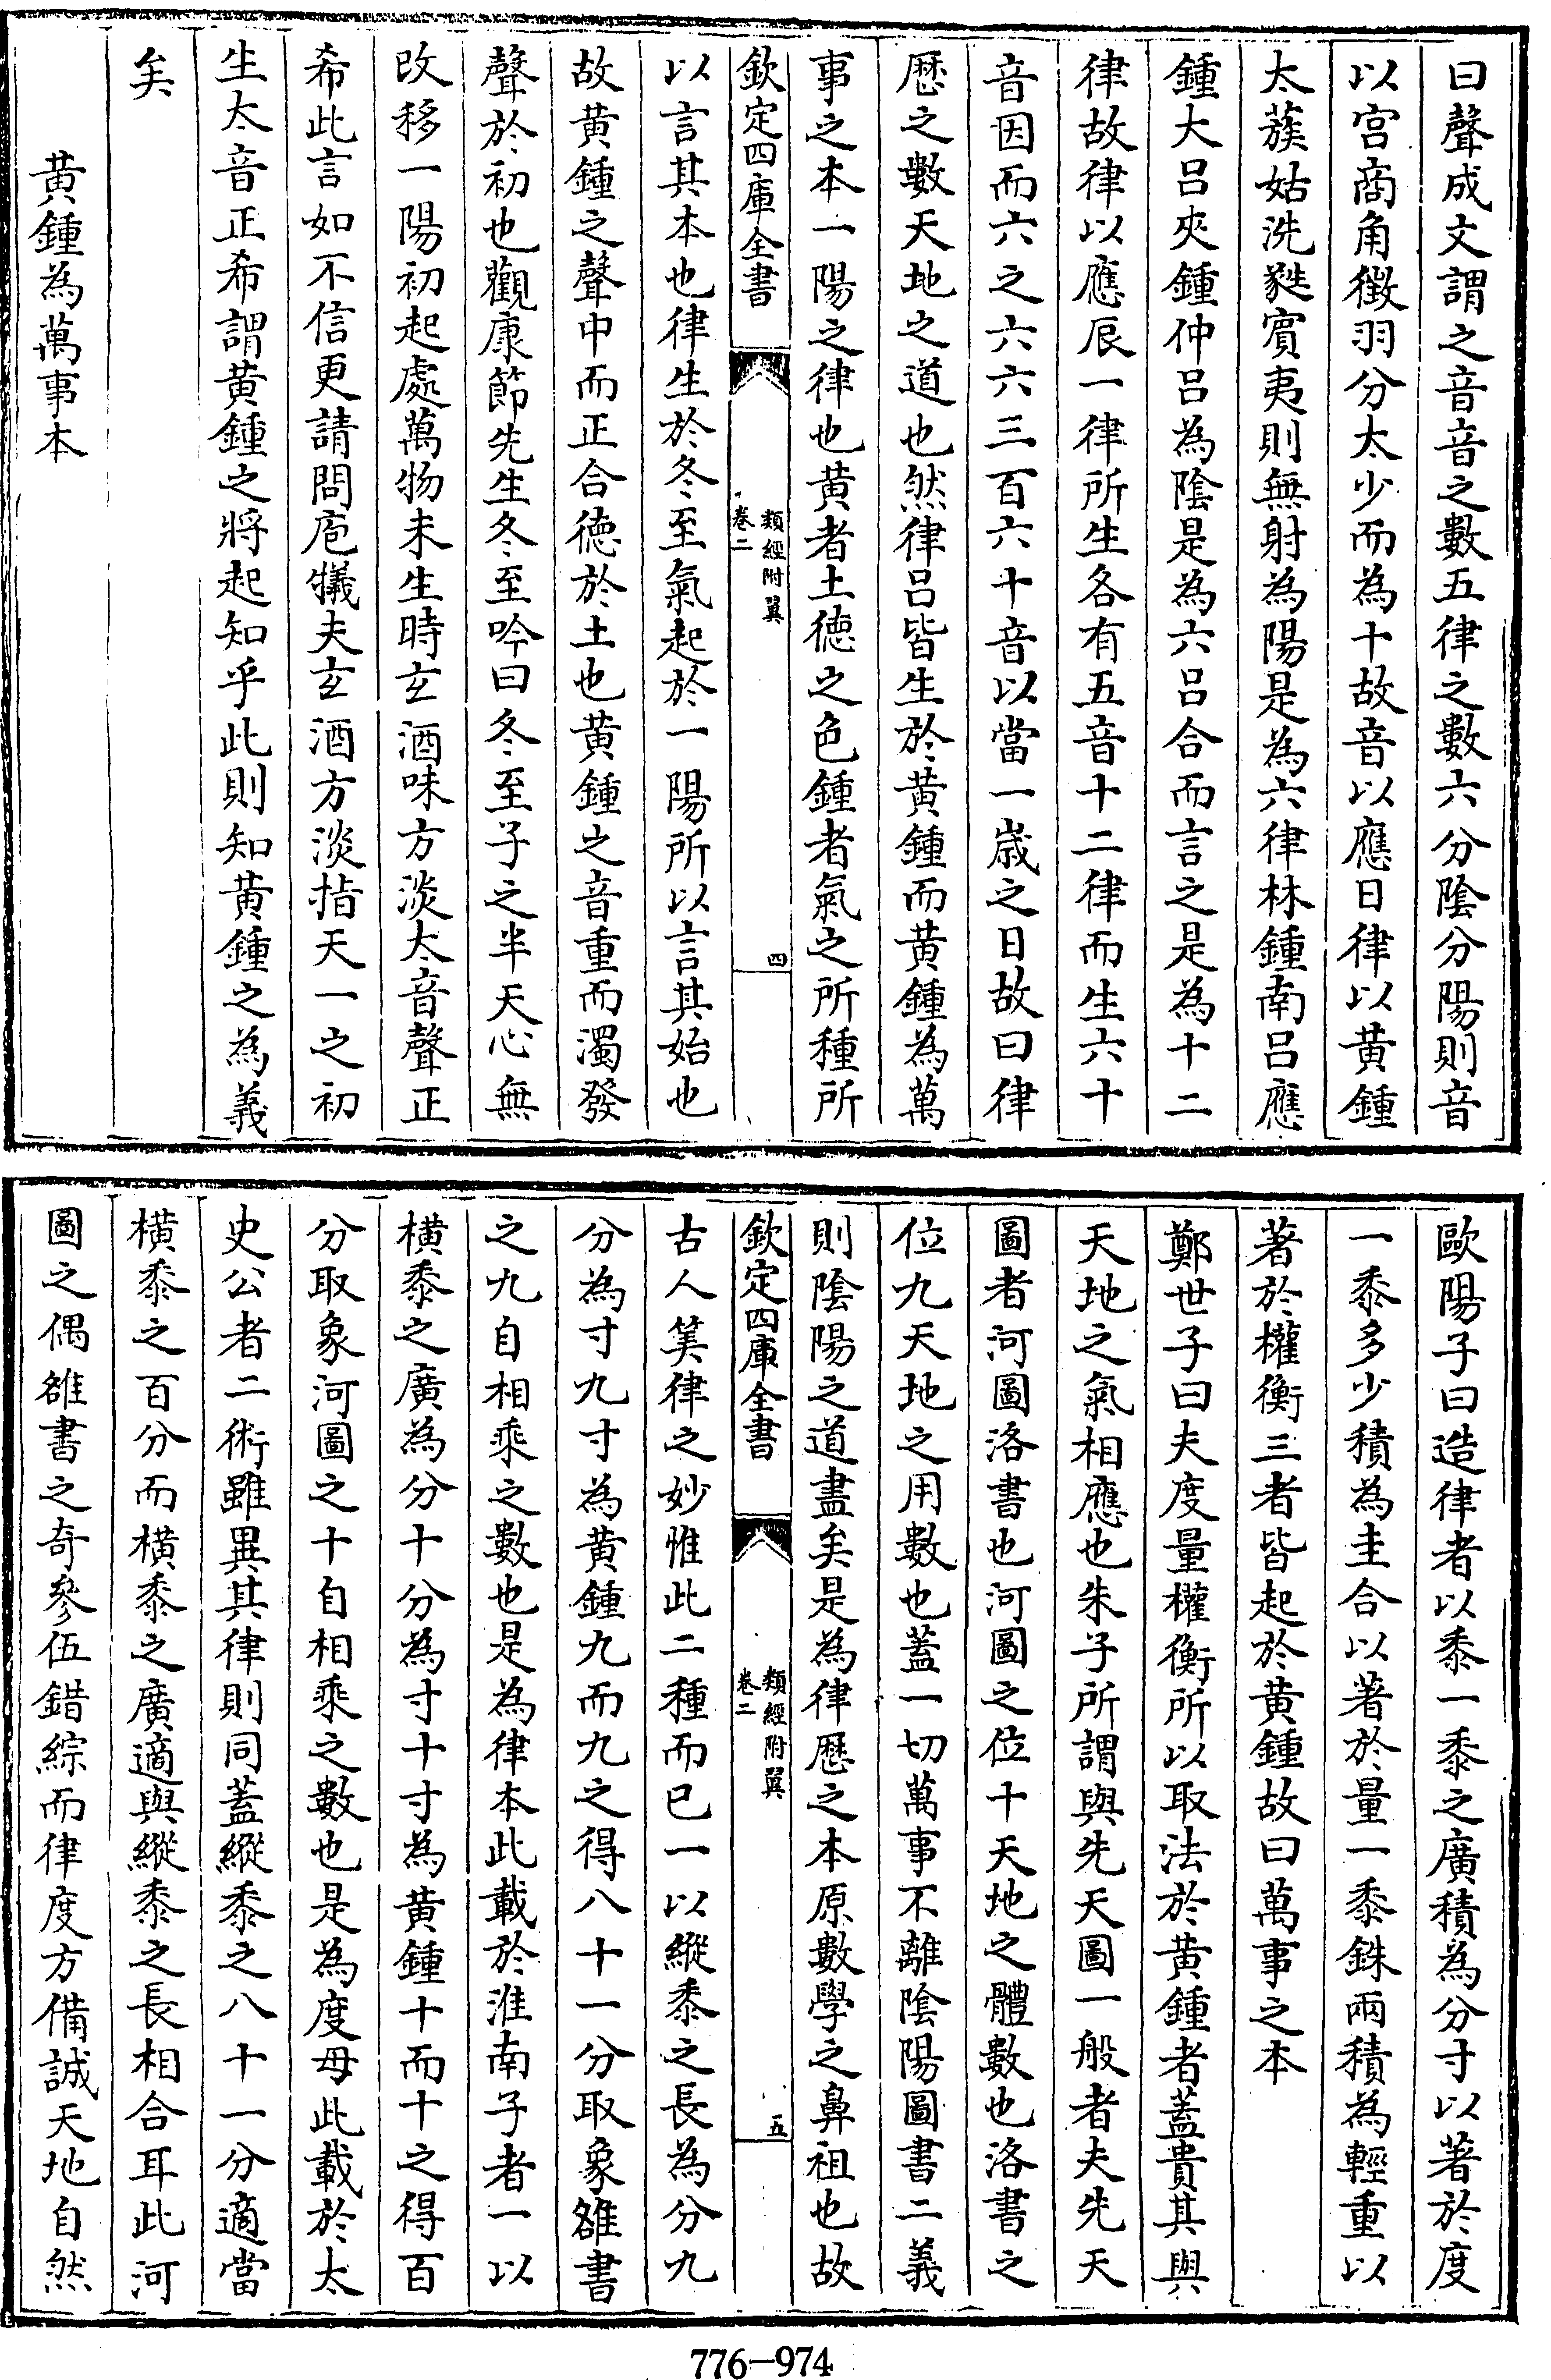 曰聲成文謂之音音之數五律之數六分陰分陽則音
以宫商角徵羽分太少而為十故音以應日律以黄鍾
太蔟姑洗蕤賓夷則無射為陽是為六律林鍾南吕應
鍾大吕夾鍾仲吕為陰是為六吕合而言之是為十二
律故律以應辰一律所生各有五音十二律而生六十
音因而六之六六三百六十音以當一歲之日故曰律
歴之數天地之道也然律吕皆生於黄鍾而黄鍾為萬
事之本一陽之律也黄者土德之色鍾者氣之所種所
欽定四庫全書
類經附翼
卷二
四
以言其本也律生於冬至氣起於一陽所以言其始也
故黄鍾之聲中而正合德於土也黄鍾之音重而濁發
聲於初也觀康節先生冬至吟曰冬至子之半天心無
改移一陽初起處萬物未生時玄酒味方淡太音聲正
希此言如不信更請問庖犧夫玄酒方淡指天一之初
生太音正希謂黄鍾之將起知乎此則知黄鍾之為義
矣
黄鍾為萬事本
歐陽子曰造律者以黍一黍之廣積為分寸以著於度
一黍多少積為圭合以著於量一黍銖兩積為輕重以
著於權衡三者皆起於黄鍾故曰萬事之本
鄭世子曰夫度量權衡所以取法於黄鍾者蓋貴其與
天地之氣相應也朱子所謂與先天圖一般者夫先天
圖者河圖洛書也河圖之位十天地之體數也洛書之
位九天地之用數也蓋一切萬事不離陰陽圖書二義
則陰陽之道盡矣是為律歴之本原數學之鼻祖也故
欽定四庫全書
類經附翼
卷二
五
古人筭律之妙惟此二種而已一以縱黍之長為分九
分為寸九寸為黄鍾九而九之得八十一分取象雒書
之九自相乘之數也是為律本此載於淮南子者一以
横黍之廣為分十分為寸十寸為黄鍾十而十之得百
分取象河圖之十自相乘之數也是為度母此載於太
史公者二術雖異其律則同蓋縱黍之八十一分適當
横黍之百分而横黍之廣適與縱黍之長相合耳此河
圖之偶雒書之奇參伍錯綜而律度方備誠天地自然
776-974